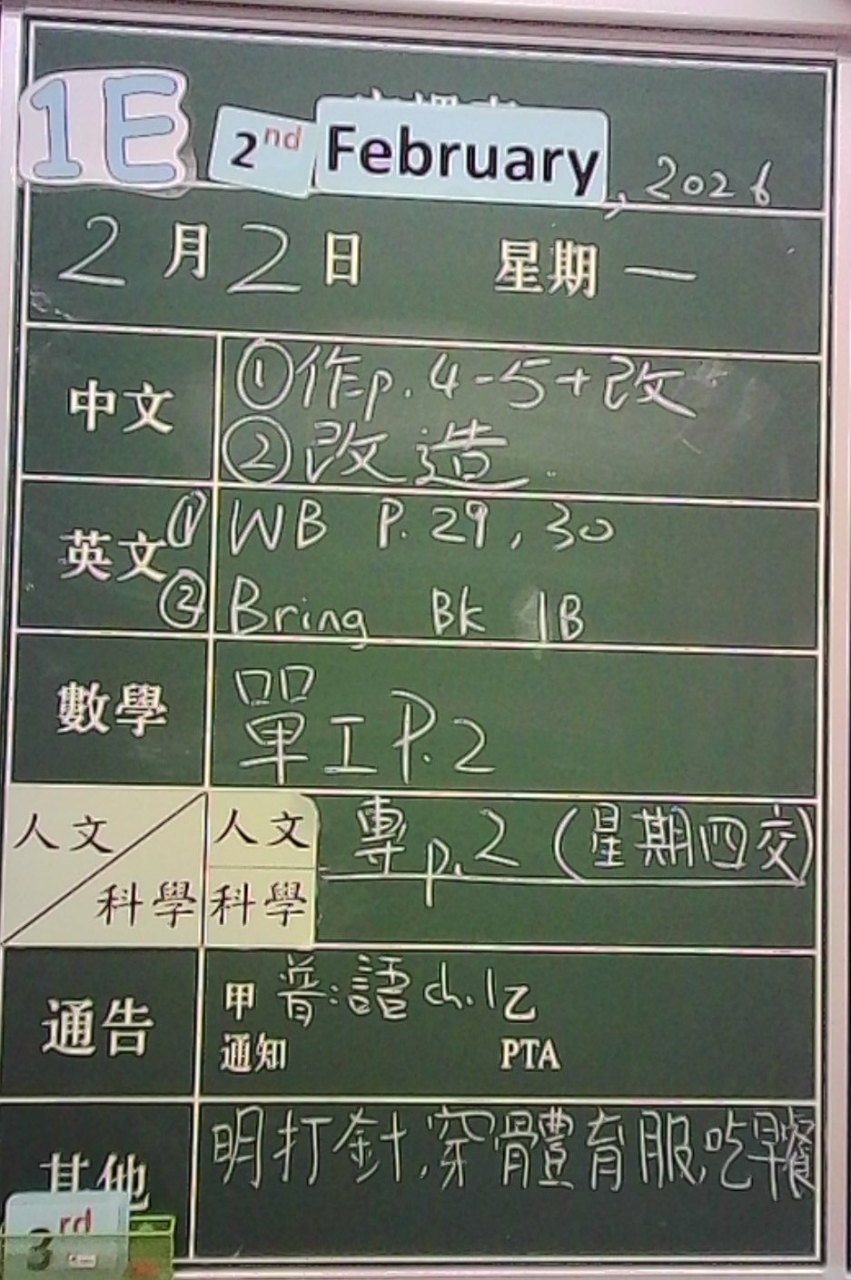 1E
2nd February, 2026
2月2日 星期一
中文 ①作p.4-5+改
②改造
英文 ① WB P.29, 30
② Bring Bk 1B
數學 單工P.2
人文 人文 專p.2 (星期四交)
科學 科學
通告 甲 普:語ch.1 乙
通知 PTA
其他 明打針,穿體育服,吃早餐
3rd